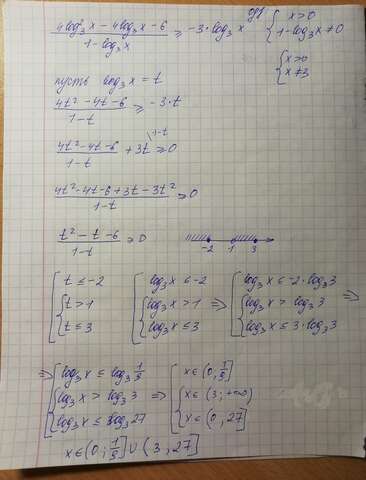 (4log₃²x - 4log₃x - 6)/(1 - log₃x) ≥ -3·log₃x   одз { x>0
1-log₃x≠0
{ x>0
x≠3
пусть log₃x = t
(4t² - 4t - 6)/(1-t) ≥ -3·t
(4t² - 4t - 6)/(1-t) + 3t \1-t ≥ 0
(4t² - 4t - 6 + 3t - 3t²)/(1-t) ≥ 0
(t² - t - 6)/(1-t) ≥ 0   -2 1 3
[ t ≤ -2   [ log₃x ≤ -2   [ log₃x ≤ -2·log₃3
{ t > 1   { log₃x > 1 ⇒   { log₃x > log₃3 ⇒
t ≤ 3   log₃x ≤ 3   log₃x ≤ 3·log₃3
⇒ [ log₃x ≤ log₃ 1/9   [ x∈(0; 1/9]
{ log₃x > log₃3 ⇒   { x∈(3; +∞)
log₃x ≤ log₃27   x∈(0; 27]
x∈(0; 1/9] ∪ (3; 27]